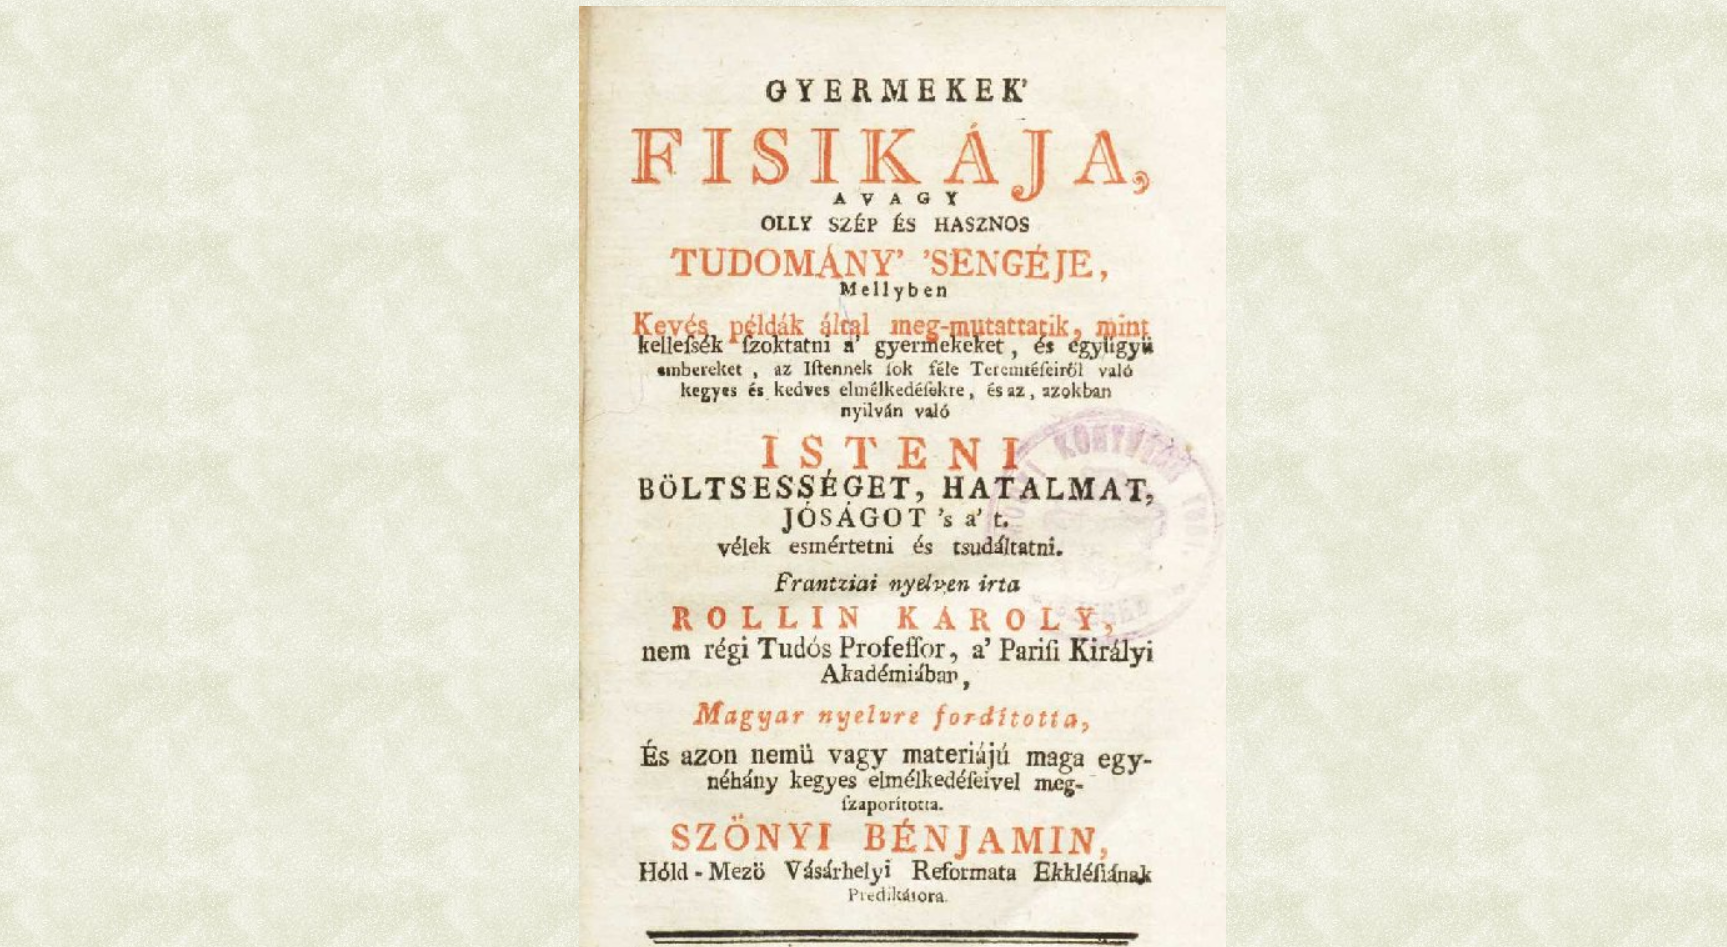 GYERMEKEK'
FISIKÁJA,
AVAGY
OLLY SZÉP ÉS HASZNOS
TUDOMÁNY' 'SENGÉJE,
Mellyben
Kevés példák által meg-mutattatik, mint
kelleſsék ſzoktatni a' gyermekeket, és együgyü
embereket, az Iſtennek ſok féle Teremtéſeiröl való
kegyes és kedves elmélkedéſekre, és az, azokban
nyilván való
ISTENI
BÖLTSESSÉGET, HATALMAT,
JÓSÁGOT 's a' t.
vélek esmértetni és tsudáltatni.
Frantziai nyelven irta
ROLLIN KÁROLY,
nem régi Tudós Profeſſor, a' Pariſi Királyi
Akadémiában,
Magyar nyelvre fordította,
És azon nemü vagy materiájú maga egy-
néhány kegyes elmélkedéſeivel meg-
ſzaporította.
SZÖNYI BÉNJAMIN,
Hóld-Mezö Vásárhelyi Reformata Ekkléſiának
Predikátora.